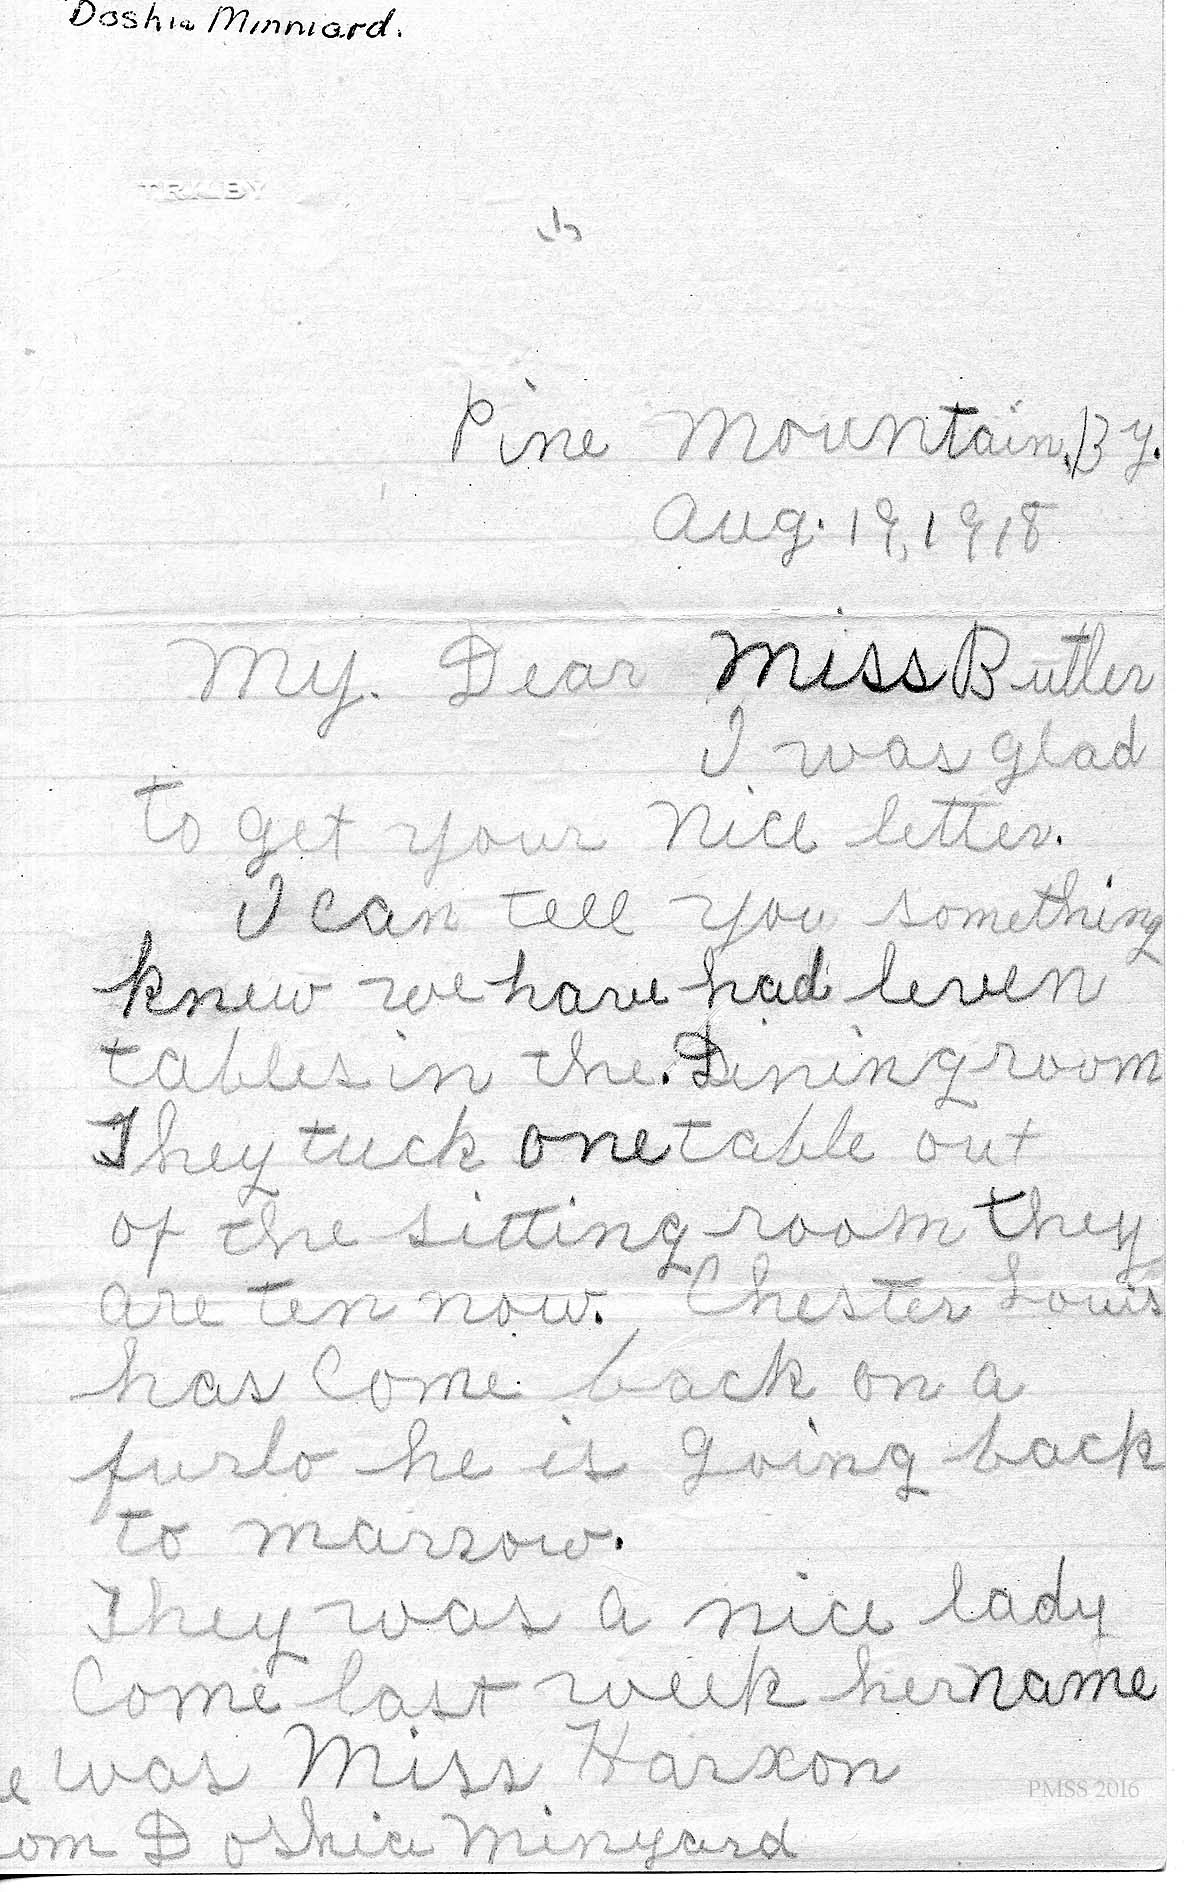 Doshia Minniard.
Pine Mountain, Ky.
Aug. 19, 1918
My. Dear Miss Butler
I was glad
to get your nice letter.
I can tell you something
knew we have had leven
tables in the. Dining room
They tuck one table out
of the sitting room they
are ten now. Chester Louis
has Come back on a
furlo he is going back
to marrow.
They was a nice lady
Come last week her name
was Miss Harxon
om Doshia Minyard
PMSS 2016